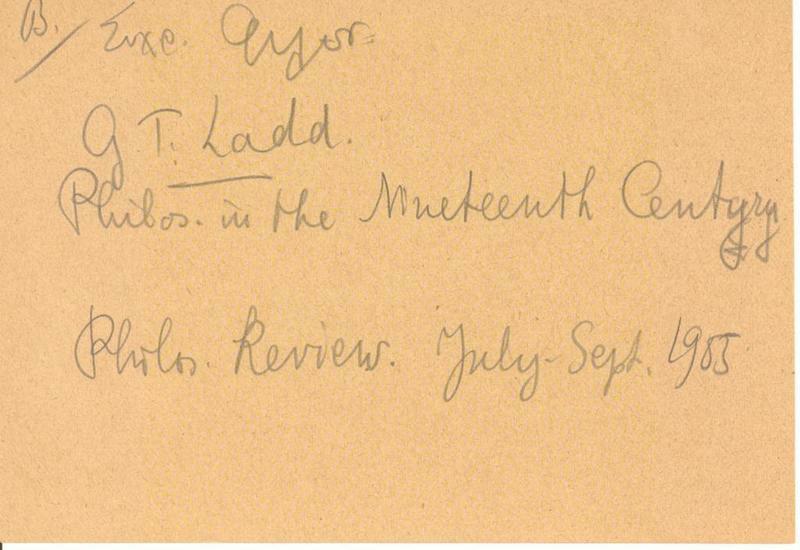 B./ Exc. 
G T. Ladd.
Philos. in the Nineteenth Centyry
Philos. Review. July-Sept. 1905